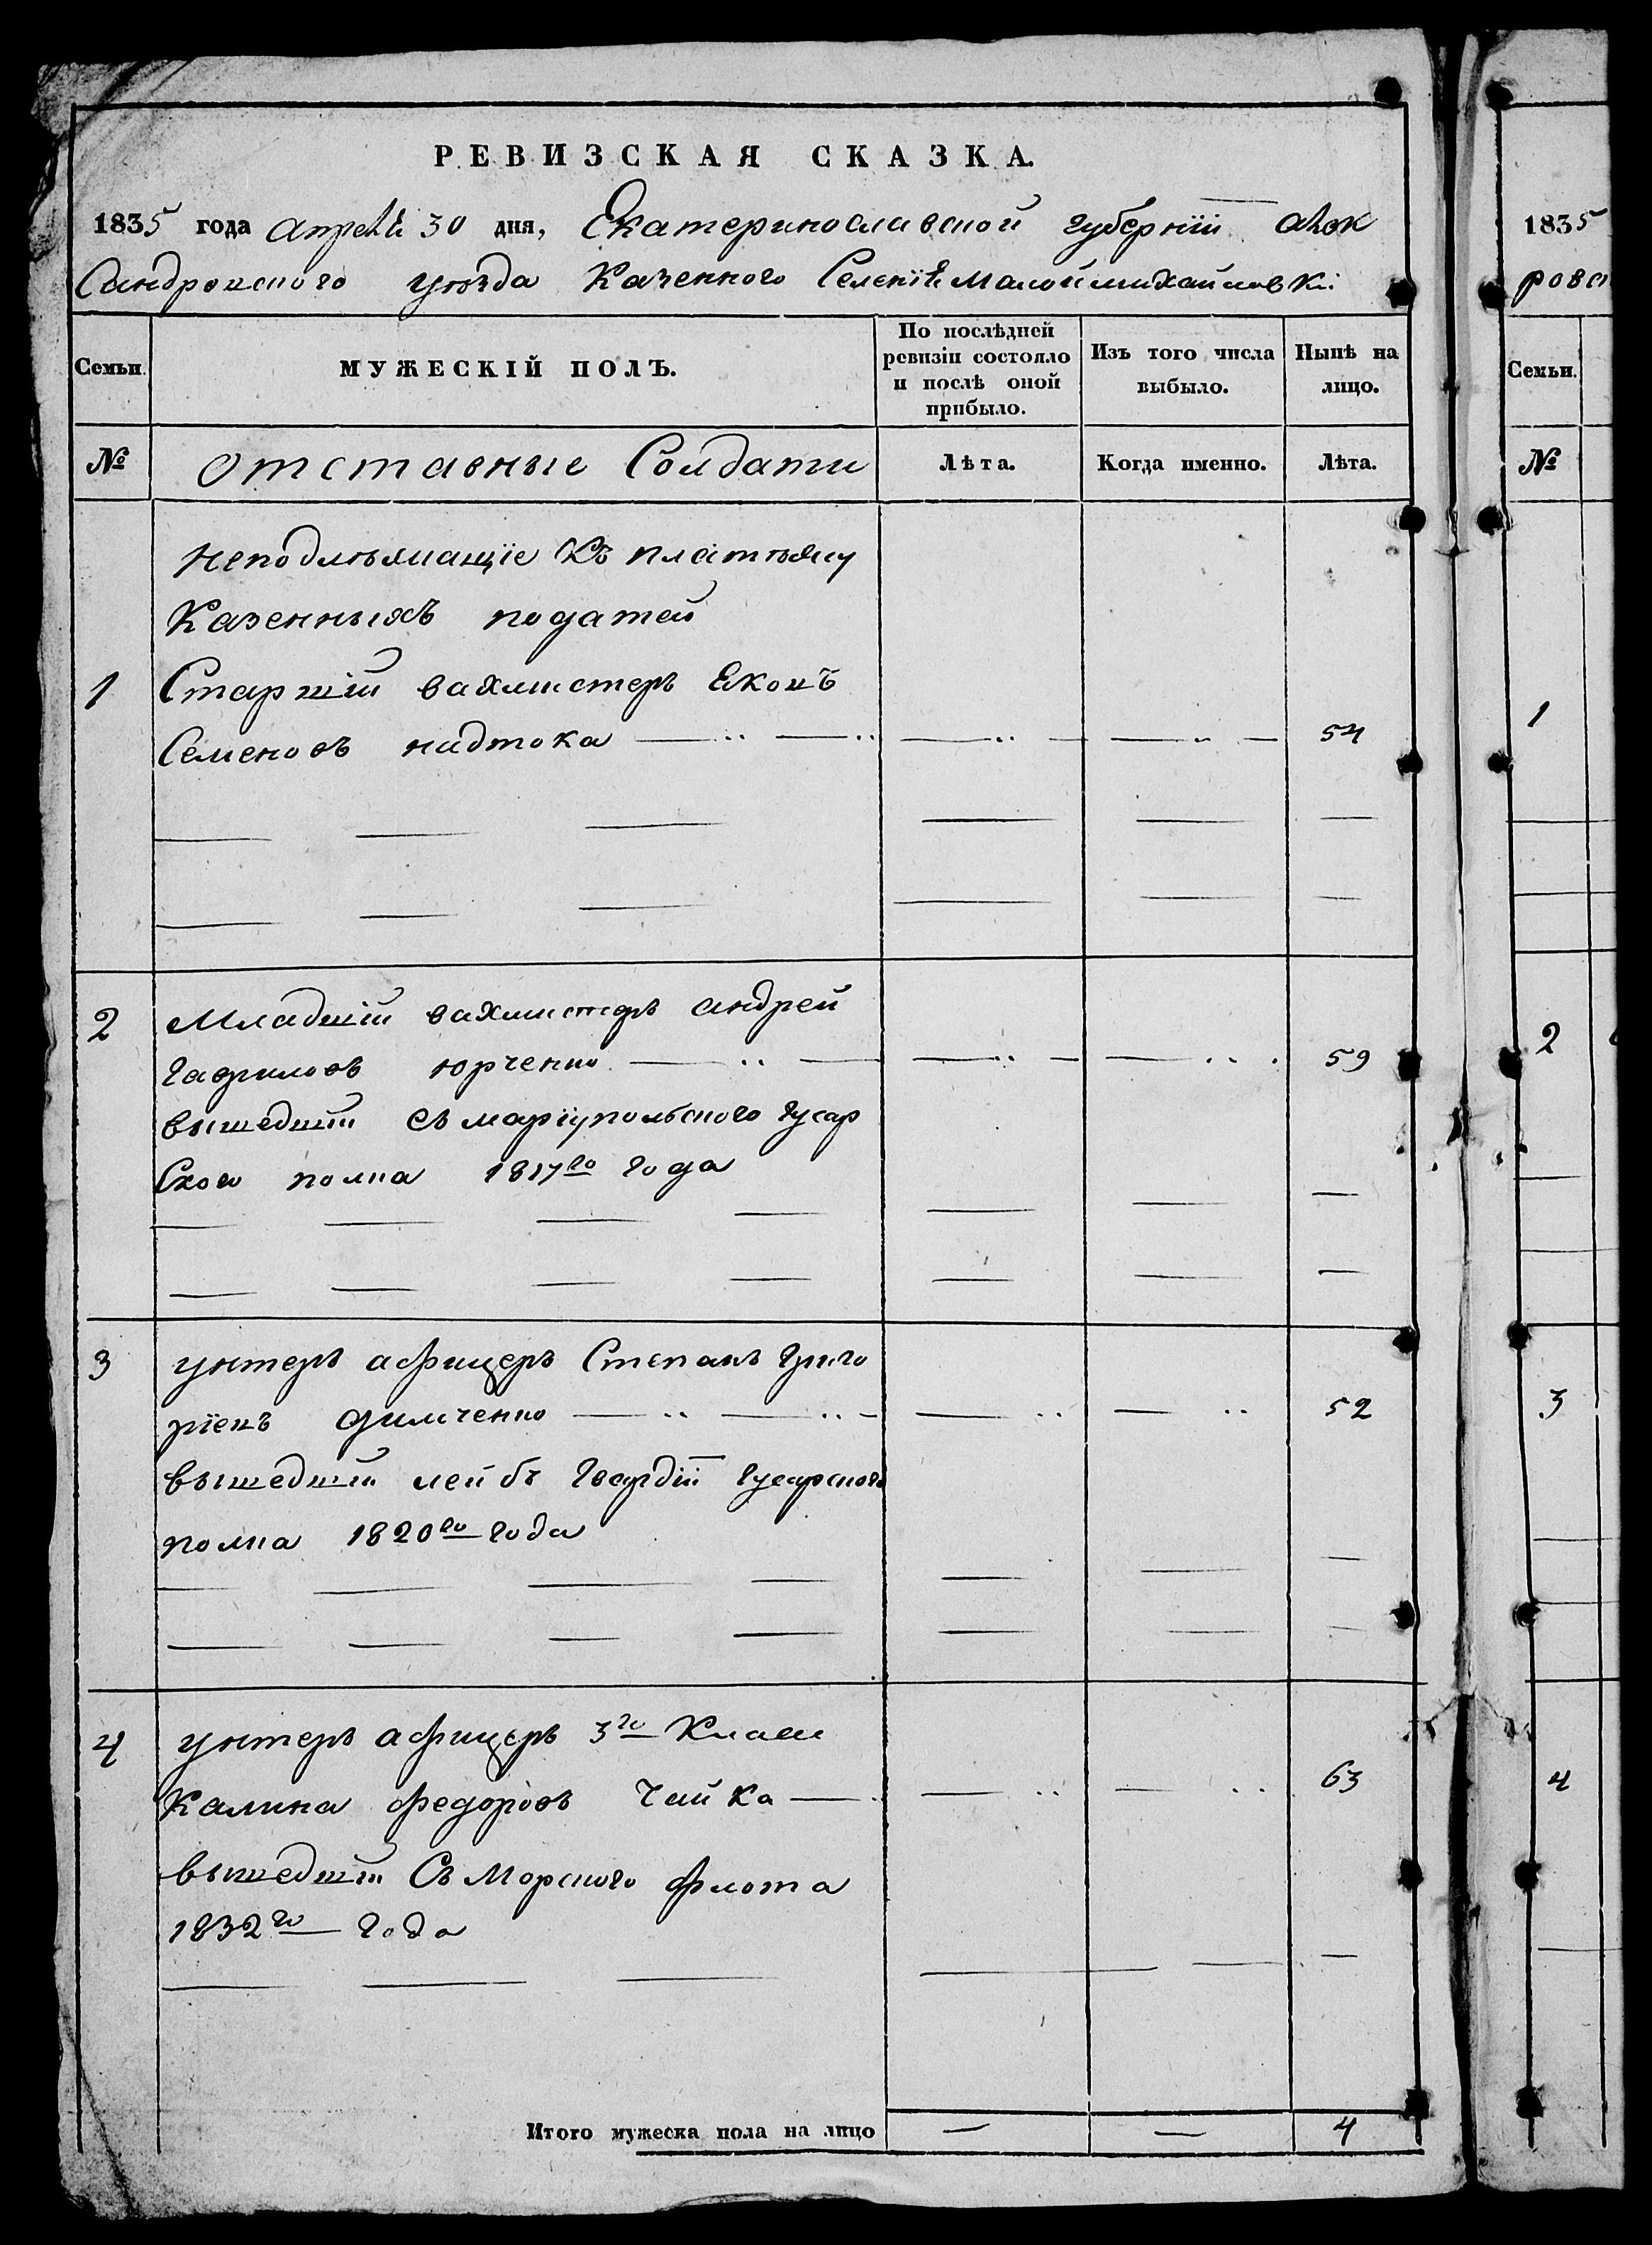 РЕВИЗСКАЯ СКАЗКА.
1835 года апреля 30 дня, Екатеринославской губернїи алек
Сандровского уезда Казенного Селенїя малой михайловки
Семьи.
МУЖЕСКІЙ ПОЛЪ.
По послѣдней ревизіи состояло и послѣ оной прибыло.
Изъ того числа выбыло.
Нынѣ на лицо.
№
отставные Солдати
Лѣта.
Когда именно.
Лѣта.
неподлежащїе Къ платежу
Казенныхъ податей
1 Старшїй вахмистеръ Яковъ
Семеновъ надтока 54
2 Младшїй вахмистеръ андрей
гавриловъ юрченко 59
вышедшїй съ марїупольского гусар
Ского полка 1817го года
3 унтеръ афицеръ Степанъ григо
рїевъ димченко 52
вышедшїй лейбъ гвардїй гусарского
полка 1820го года
4 унтеръ афицеръ 3го Класа
Калина федоровъ Чайка 63
вышедшїй Съ Морского флота
1832го года
Итого мужеска пола на лицо — — 4
1835
рова
Семьи.
№
1
2
3
4